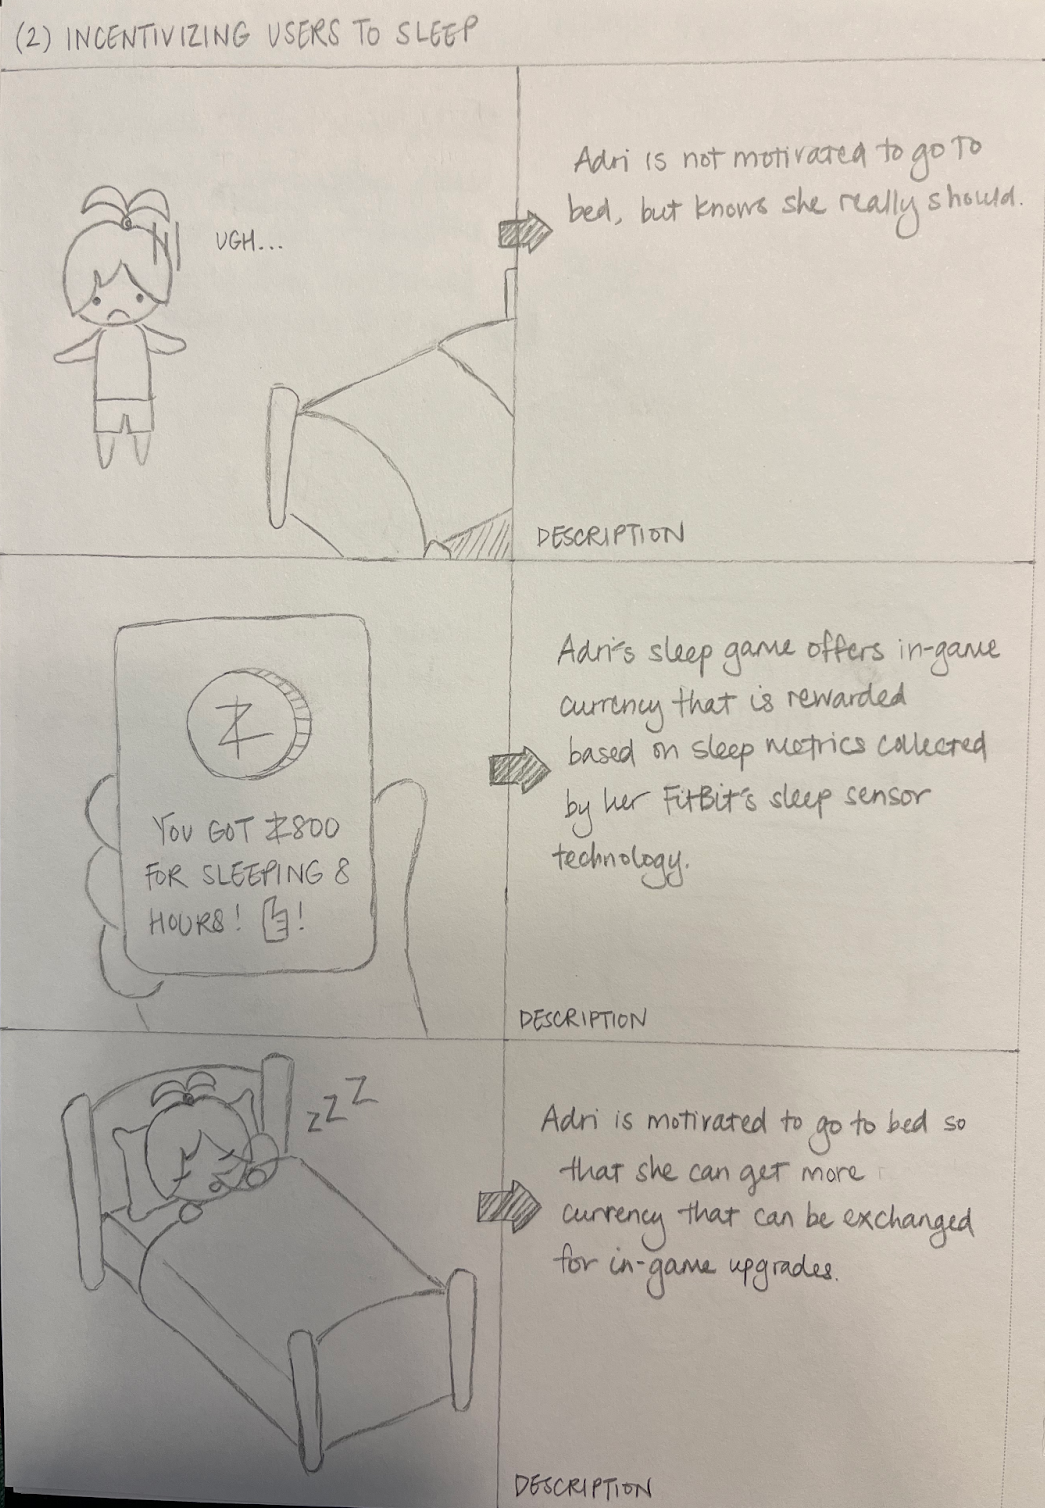 (2) INCENTIVIZING USERS TO SLEEP
UGH...
Adri is not motivated to go to
bed, but knows she really should.
DESCRIPTION
Z
YOU GOT Ƶ800
FOR SLEEPING 8
HOURS! !
Adri's sleep game offers in-game
currency that is rewarded
based on sleep metrics collected
by her FitBit's sleep sensor
technology.
DESCRIPTION
zZZ
Adri is motivated to go to bed so
that she can get more
currency that can be exchanged
for in-game upgrades.
DESCRIPTION